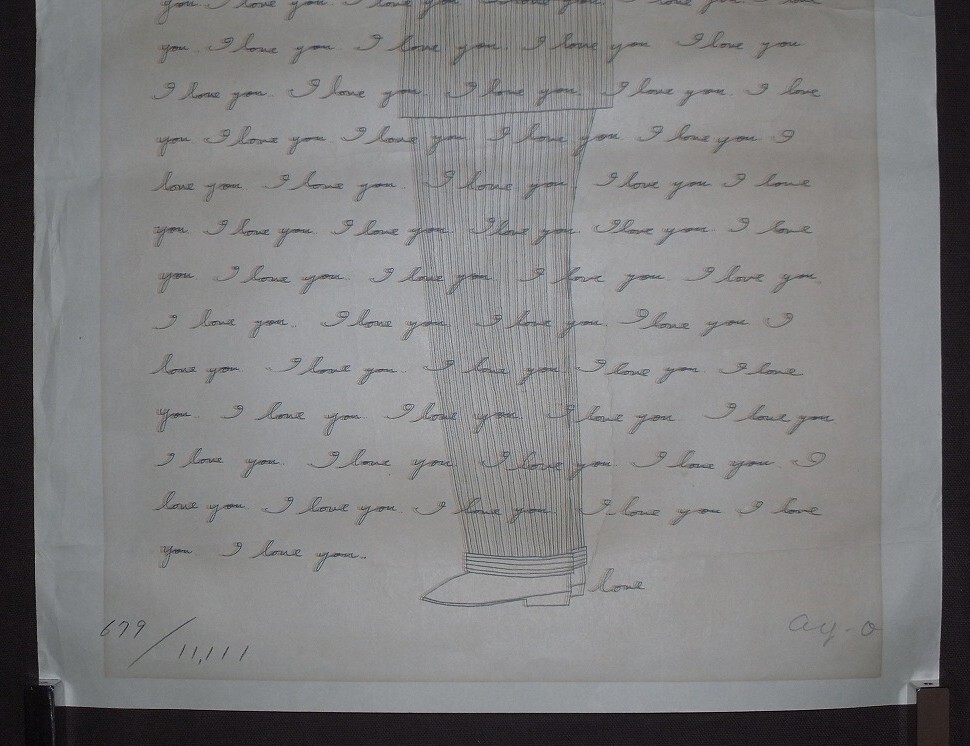 you I love you I love you I love you I love you I love
you I love you I love you I love you I love you
I love you I love you I love you I love you I love
you I love you I love you I love you I love you I
love you I love you. I love you I love you I love
you I love you I love you I love you I love you I love
you I love you I love you I love you I love you.
I love you.. I love you I love you I love you I
love you I love you. I love you I love you I love
you I love you I love you I love you I love you
I love you I love you I love you I love you I
love you I love you I love you I love you I love
you I love you.
love
679/11,111
ay-o